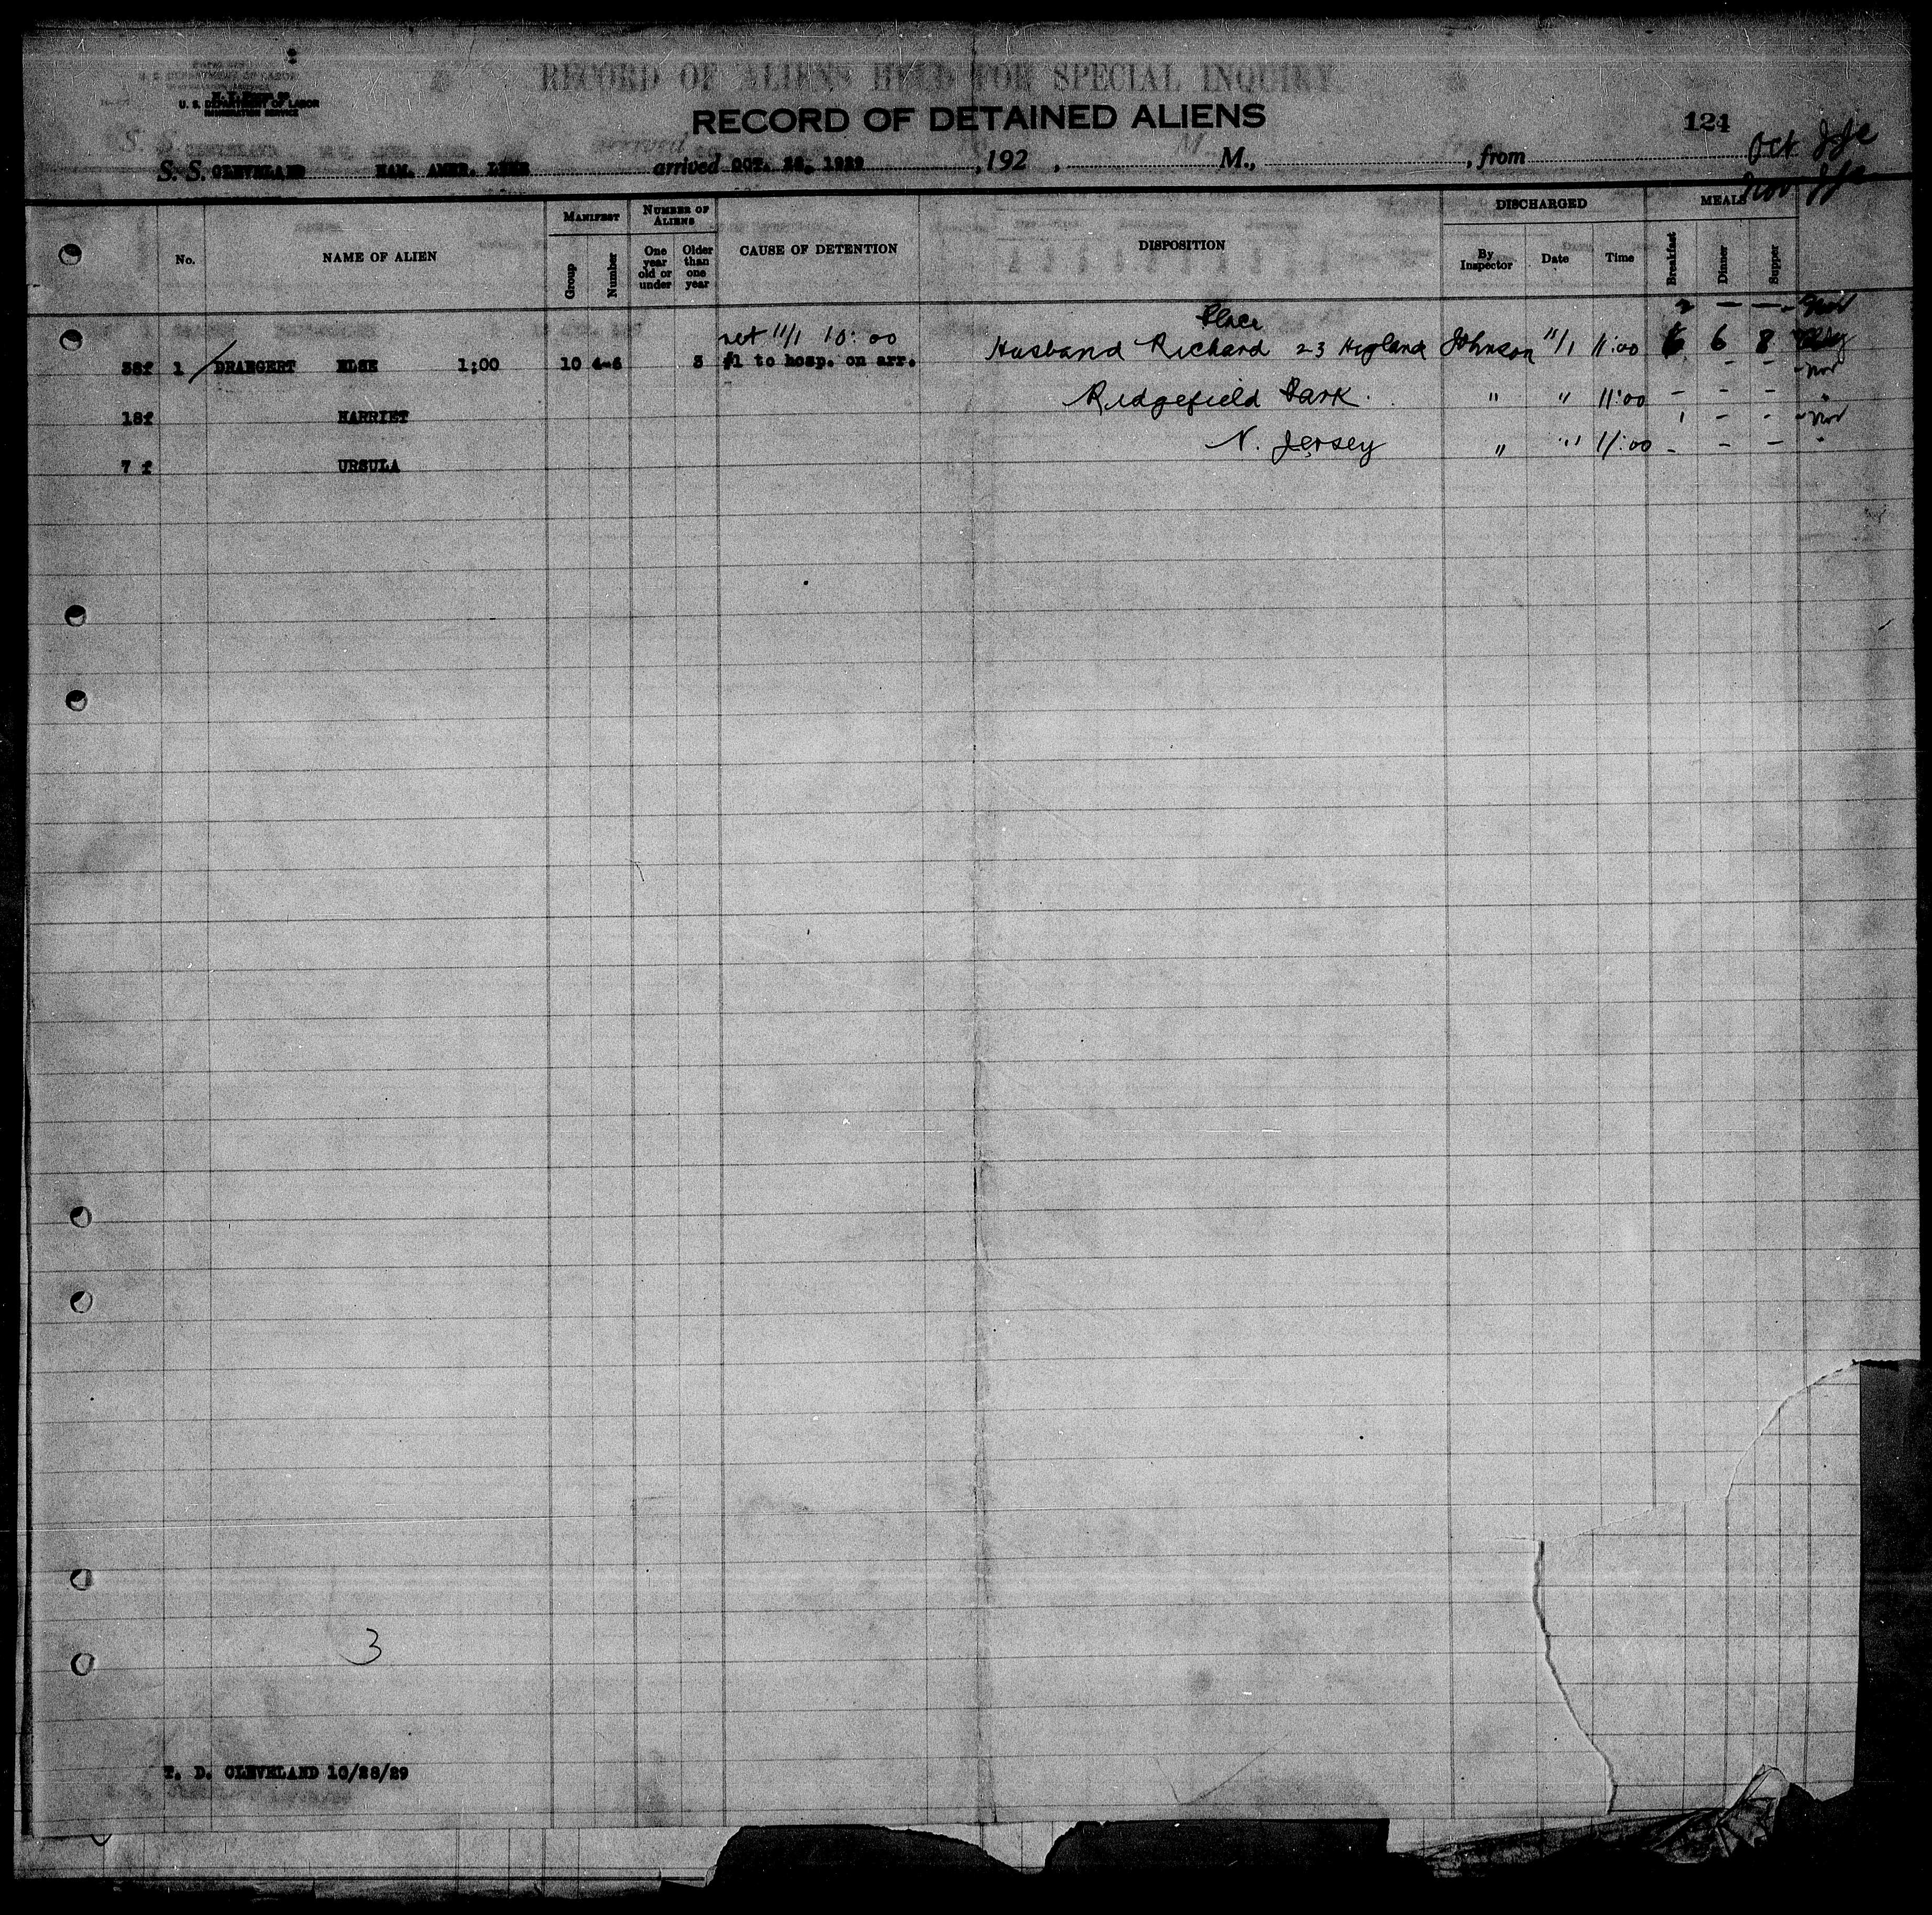 RECORD OF ALIENS HELD FOR SPECIAL INQUIRY
U. S. DEPARTMENT OF LABOR
IMMIGRATION SERVICE
RECORD OF DETAINED ALIENS
124
S. S. CLEVELAND HAM. AMER. LINE arrived OCT. 28, 1929, 192 , M., , from Oct
Nov
No. NAME OF ALIEN MANIFEST Group Number NUMBER OF ALIENS One year old or under Older than one year CAUSE OF DETENTION DISPOSITION DISCHARGED By Inspector Date Time MEALS Breakfast Dinner Supper
Place 2 — —
ret 11/1 10:00
38f 1 DRAEGERT ELSE 1;00 10 4-6 3 #1 to hosp. on arr. Husband Richard 23 Higland Johnson 11/1 11:00 6 6 8
18f HARRIET Ridgefield Park. " " 11:00 - - -
7 f URSULA N. Jersey " " 11:00 - - -
3
T. D. CLEVELAND 10/28/29